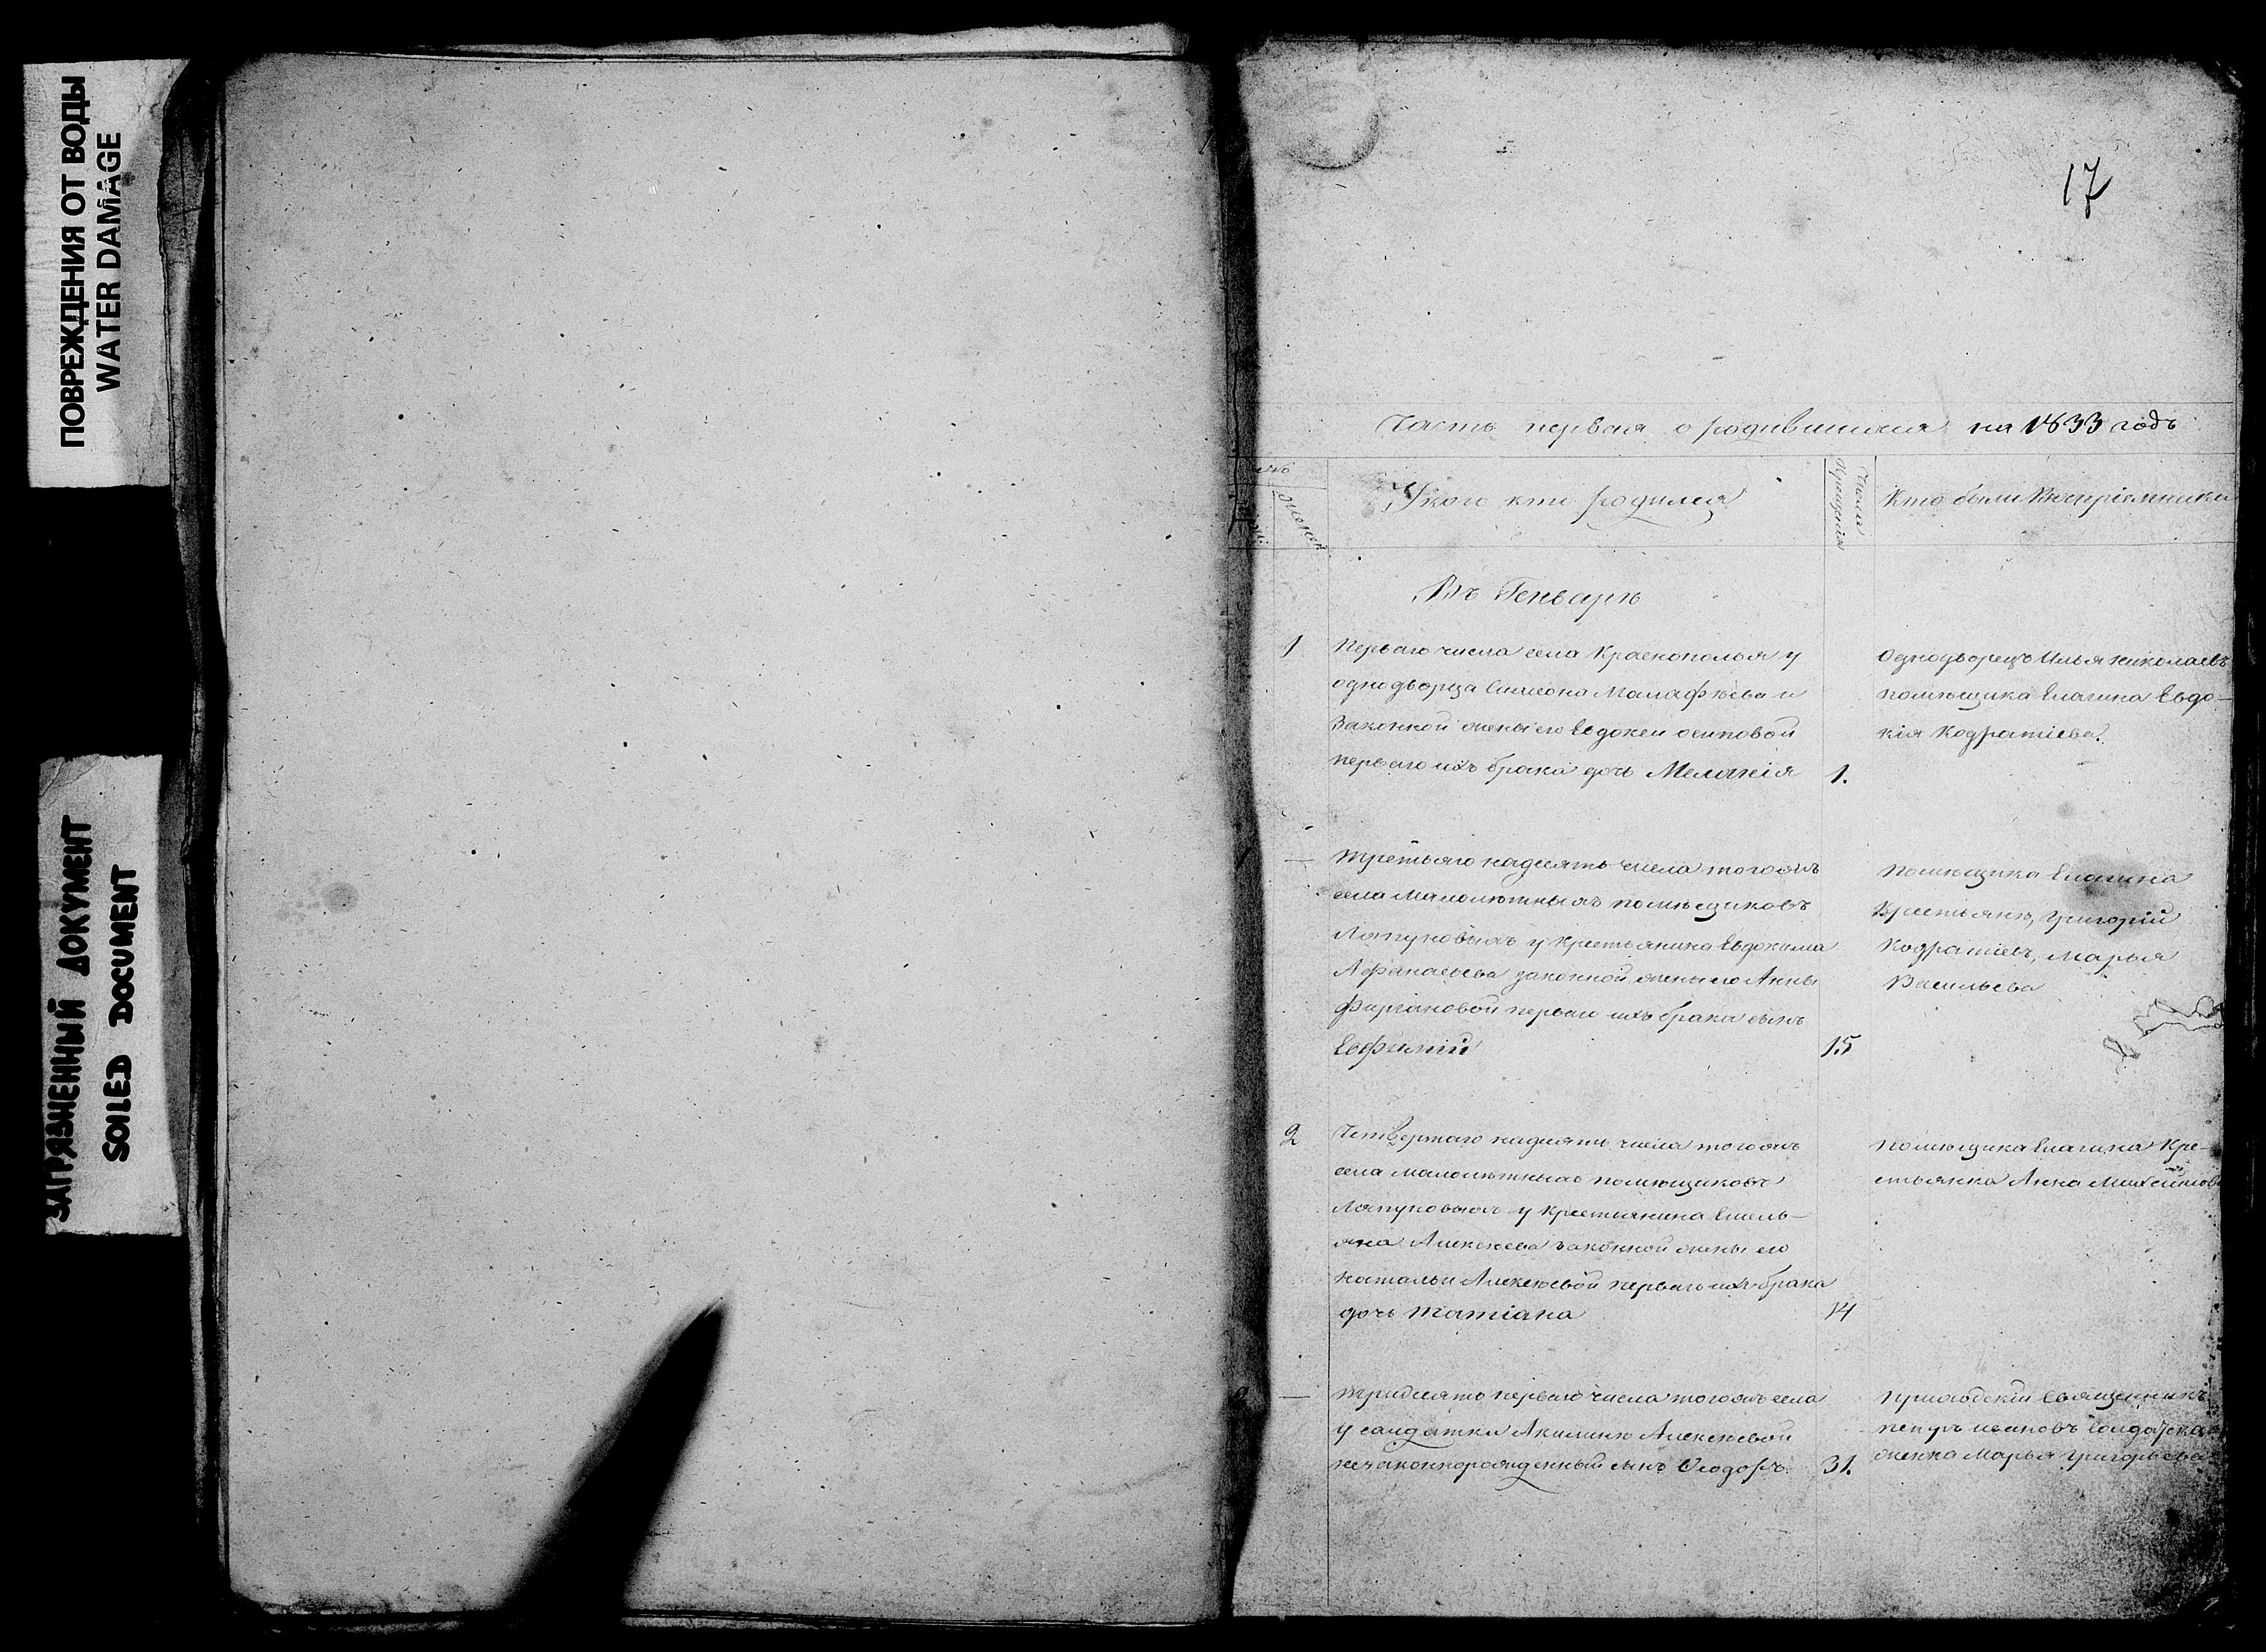 ПОВРЕЖДЕНИЯ ОТ ВОДЫ
WATER DAMAGE
ЗАГРЯЗНЕННЫЙ ДОКУМЕНТ
SOILED DOCUMENT
17
Часть первая о родившихся на 1833 годъ
женск
У кого кто родился
Число Крещенія
Кто были Воспріемники
Въ Генварѣ
1
Перваго числа села Краснополья у
однодворца Симеона Малафѣева и
Законной жены его Евдокеи осиповой
перваго ихъ брака дочь Меланія
1.
однодворецъ Илья николаевъ
помѣщика Елагина Евдо-
кія Кодратіева.
1 —
третьяго надесять числа тогожъ
села Малолѣтныхъ помѣщиковъ
Ляпуновыхъ у крестьянина Евдокима
Афанасьева законной жены его Анны
Фирсановой перваго ихъ брака сынъ
Евфимій
15
помѣщика Елагина
Крестьянѣ, григорій
Кодратіевъ, Марья
Васильева
2
Четвертаго надесять числа тогожъ
села малолѣтныхъ помѣщиковъ
Ляпуновыхъ у крестьянина Емель-
яна Алексѣева законной жены его
натальи Алексѣевой перваго ихъ брака
дочь татіана
14
помѣщика Елагина Кре-
стьянка Анна
2 —
тридесять перваго числа тогожъ села
у салдатки Акилины Алексѣевой
незаконнорожденный сынъ Ѳеодоръ.
31.
приходскій Священникъ
петръ ивановъ Солдатска
женка Марья григорьева